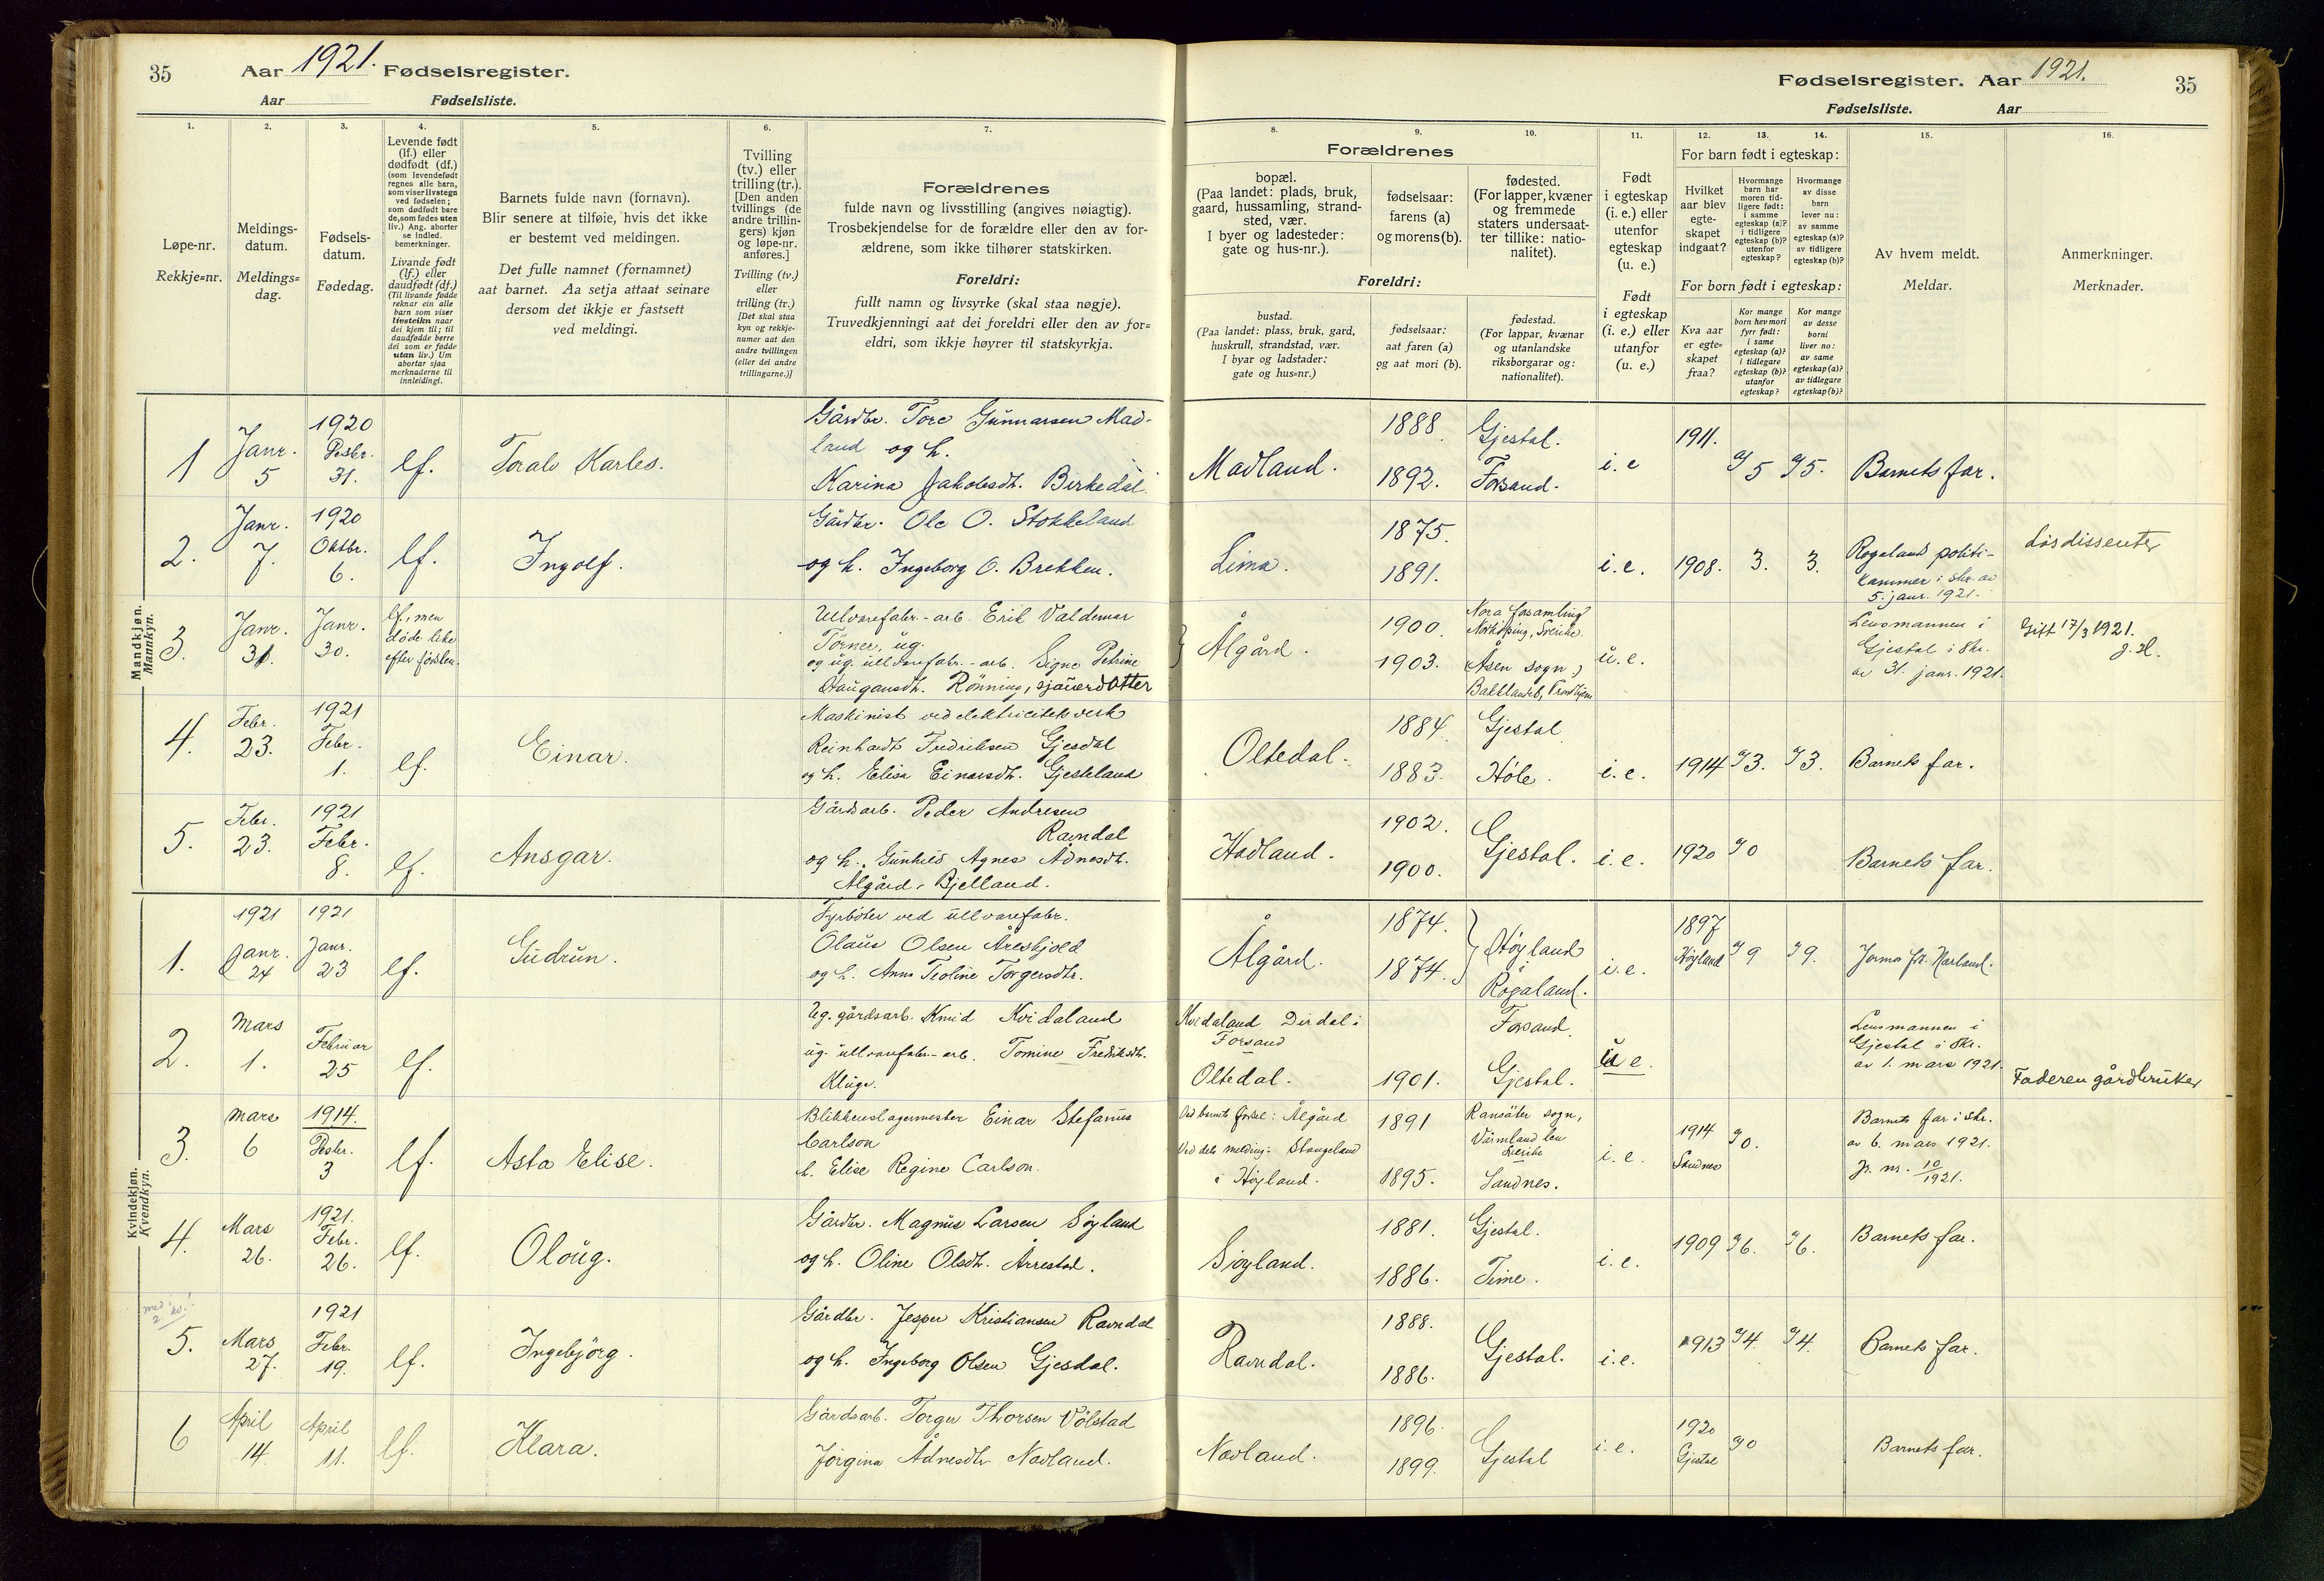 35
Aar 1921. Fødselsregister.
Aar Fødselsliste.
1.
2.
3.
4.
5.
6.
7.
Løpe-nr.
Rekkje=nr.
Meldings-
datum.
Meldings=
dag.
Fødsels-
datum.
Fødedag.
Levende født
(lf.) eller
dødfødt (df.)
(som levendefødt
regnes alle barn,
som viser livstegn
ved fødselen;
som dødfødt bare
de, som fødes uten
liv.) Ang. aborter
se indled.
bemerkninger.
Livande født
(lf.) eller
daudfødt (df.)
(Til livande fødde
reknar ein alle
barn som viser
livsteikn naar
dei kjem til; til
daudfødde berre
dei som er fødde
utan liv.) Um
abortar sjaa
merknaderne til
innleidingi.
Barnets fulde navn (fornavn).
Blir senere at tilføie, hvis det ikke
er bestemt ved meldingen.
Det fulle namnet (fornamnet)
aat barnet. Aa setja attaat seinare
dersom det ikkje er fastsett
ved meldingi.
Tvilling
(tv.) eller
trilling (tr.).
[Den anden
tvillings (de
andre trillin-
gers) kjøn
og løpe-nr.
anføres.]
Tvilling (tv.)
eller
trilling (tr.)
[Det skal staa
kyn og rekkje-
numer aat den
andre tvillingen
(eller dei andre
trillingarne.)]
Forældrenes
fulde navn og livsstilling (angives nøiagtig).
Trosbekjendelse for de forældre eller den av for-
ældrene, som ikke tilhører statskirken.
Foreldri:
fullt namn og livsyrke (skal staa nøgje).
Truvedkjenningi aat dei foreldri eller den av for=
eldri, som ikkje høyrer til statskyrkja.
Mandkjøn.
Mannkyn.
1 Janr. 5 1920 Desbr. 31. lf. Toralv Karles.
Gårdbr. Tore Gunnarsen Mad-
land og h.
Karina Jakobsdt. Birkedal.
2. Janr. 7. 1920 Oktbr. 6. lf. Ingolf.
Gårdbr. Ole O. Stokkeland
og h. Ingeborg O. Brekken.
3. Janr. 31. Janr. 30. lf., men
døde like
efter førslen.
Ulvarefabr.-arb. Erik Valdemar
Törner, ug.
og ug. ullvarefabr.-arb. Signe Petrine
Haugansdt. Rönning, sjauerdotter
4. Febr. 23. 1921 Febr. 1. lf. Einar.
Maskinist ved elektricitetsverk
Reinhardt Fredriksen Gjesdal
og h. Elisa Einarsdt. Gjesteland
5. Febr. 23. 1921 Febr. 8. lf. Ansgar.
Gårdsarb. Peder Andresen
Ravndal
og h. Gunhild Agnes Ådnesdt.
Ålgård, Bjelland.
Kvindekjøn.
Kvendkyn.
1. 1921 Janr. 24 1921 Janr. 23 lf. Gudrun.
Fyrböter ved ullvarefabr.
Olaus Olsen Åreskjold
og h. Anna Teoline Torgersdtr.
2. Mars 1. Februar 25 lf.
Ug. gårdsarb. Knud Kvidaland
ug. ullvarefabr.-arb. Tomine Fredriksdt.
Kluge.
3. Mars 6 1914. Desbr. 3 lf. Asta Elise.
Blikkenslagermester Einar Stefanus
Carlson
h. Elise Regine Carlson.
4. Mars 26. 1921. Febr. 26. lf. Oloug.
Gårdbr. Magnus Larsen Søyland
og h. Oline Olsdt. Årrestad.
5. Mars 27. 1921 Febr. 19. lf. Ingebjörg.
Gårdbr. Jesper Kristiansen Ravndal
og h. Ingeborg Olsen Gjesdal.
6 April 14. April 11. lf. Klara.
Gårdsarb. Torger Thorsen Völstad
Jörgina Ådnesdtr Navland.
Fødselsregister. Aar 1921.
35
Fødselsliste. Aar
8.
9.
10.
11.
12.
13.
14.
15.
16.
Forældrenes
bopæl.
(Paa landet: plads, bruk,
gaard, hussamling, strand-
sted, vær.
I byer og ladesteder:
gate og hus-nr.).
fødselsaar:
farens (a)
og morens (b).
fødested.
(For lapper, kvæner
og fremmede
staters undersaat-
ter tillike: natio-
nalitet).
Foreldri:
bustad.
(Paa landet: plass, bruk, gard,
huskrull, strandstad, vær.
I byar og ladstader:
gate og hus=nr.)
fødselsaar:
aat faren (a)
og aat mori (b).
fødestad.
(For lappar, kvænar
og utanlandske
riksborgarar og:
nationalitet).
Født
i egteskap
(i. e.) eller
utenfor
egteskap
(u. e.)
Født
i egteskap
(i. e.) eller
utanfor
(u. e.)
For barn født i egteskap:
Hvilket
aar blev
egte-
skapet
indgaat?
Hvormange
barn har
moren tid-
ligere født:
i samme
egteskap (a)?
i tidligere
egteskap (b)?
utenfor
egteskap?
Hvormange
av disse
barn
lever nu:
av samme
egteskap (a)?
av tidligere
egteskap (b)?
For born født i egteskap:
Kva aar
er egte=
skapet
fraa?
Kor mange
born hev mori
fyrr født:
i same
egteskap (a)?
i tidlegare
egteskap (b)?
utanfor
egteskap?
Kor mange
av desse
borni
liver no:
av same
egteskap (a)?
av tidlegare
egteskap (b)?
Av hvem meldt.
Meldar.
Anmerkninger.
Merknader.
Madland. 1888 1892. Gjestal. Forsand. i. e 1911. 5 5. Barnets far.
Lima. 1875. 1891. i. e. 1908. 3. 3.
Rogaland politi-
kammer i skr. av
5. janr. 1921.
dissenter
Ålgård. 1900. 1903.
Nora församling
Norköping, Sverike.
Åsen sogn,
Baklandet, Trondhjem
u. e.
Lensmannen i
Gjestal i skr.
av 31. janr. 1921.
Gift 17/3 1921.
Oltedal. 1884 1883. Gjestal Höle. i. e. 1914 3. 3. Barnets far.
Hadland. 1902. 1900. Gjestal. i. e. 1920 0 Barnets far.
Ålgård. 1874. 1874. Høyland Rogaland. i. e. 1897 Høyland 9 9.
Kvidaland Dirdal i
Forsand
Oltedal. 1901. Forsand. Gjestal. u e.
Lensmannen i
Gjestal i skr.
av 1. mars 1921.
Faderen gårdbruker
Ved barnets fødsel: Ålgård
Ved dets melding: Stangeland
i Høyland.
1891 1895.
Ransäter sogn,
Värmland len
Sverike
Sandnes.
i. e. 1914 Sandnes 0.
Barnets far i skr.
av 6. mars 1921.
J. nr. 10/1921.
Søyland. 1881. 1886. Gjestal. Time. i. e. 1909 6. 6. Barnets far.
Ravndal. 1888. 1886. Gjestal. i. e. 1913 4. 4. Barnets far.
Navland. 1896. 1899. Gjestal i. e. 1920 Gjestal 0 Barnets far.